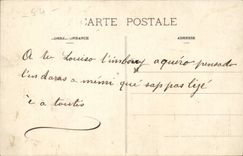 54-
CARTE POSTALE
CORRESPONDANCE
ADRESSE
A te Louiso t'imbouy aquero pensado
l'in daras a mémi qué sap pas ligé
e a toutis